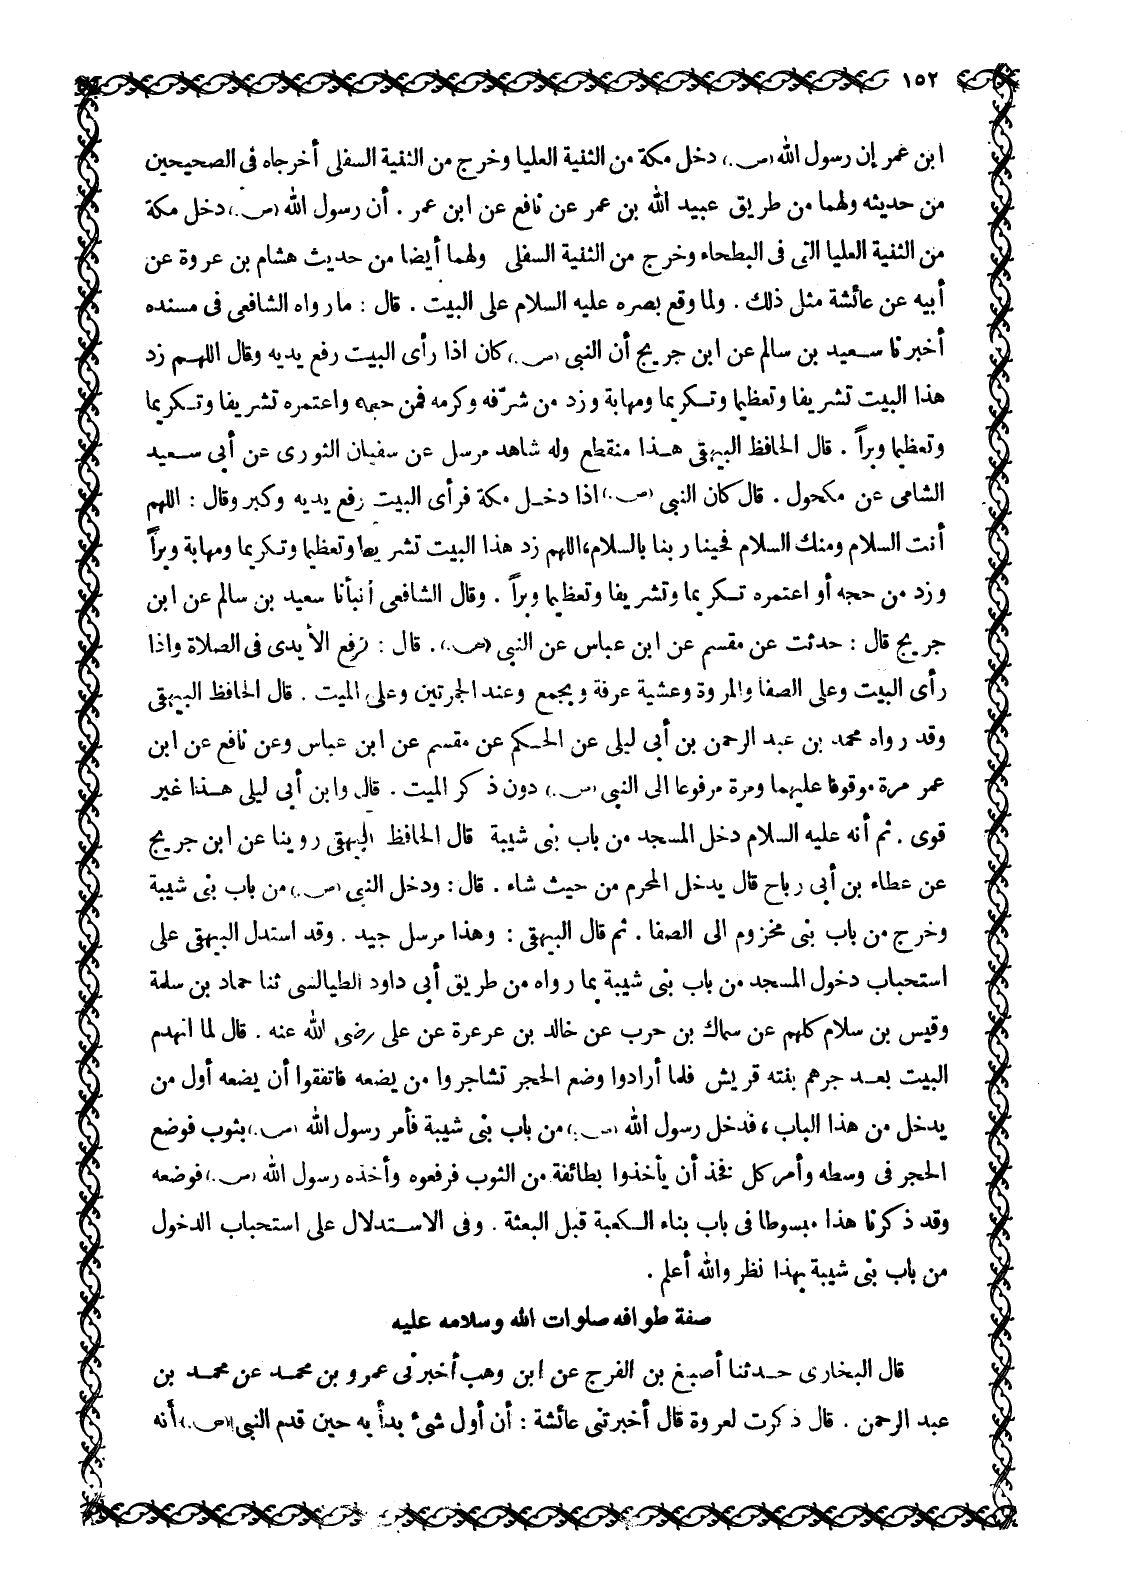 ١٥٢
ابن عمر إن رسول الله (ص.) دخل مكة من الثنية العليا وخرج من الثنية السفلى أخرجاه فى الصحيحين
من حديثه ولهما من طريق عبيد الله بن عمر عن نافع عن ابن عمر . أن رسول الله (ص.) دخل مكة
من الثنية العليا التى فى البطحاء وخرج من الثنية السفلى ولهما أيضا من حديث هشام بن عروة عن
أبيه عن عائشة مثل ذلك . ولما وقع بصره عليه السلام على البيت . قال : ما رواه الشافعى فى مسنده
أخبرنا سعيد بن سالم عن ابن جريج أن النبى (ص.) كان اذا رأى البيت رفع يديه وقال اللهم زد
هذا البيت تشريفا وتعظيما وتكريما ومهابة وزد من شرّفه وكرمه فمن حجه واعتمره تشريفا وتكريما
وتعظيما وبراً . قال الحافظ البيهقى هذا منقطع وله شاهد مرسل عن سفيان الثورى عن أبى سعيد
الشامى عن مكحول . قال كان النبى (ص.) اذا دخل مكة فرأى البيت رفع يديه وكبر وقال : اللهم
أنت السلام ومنك السلام فحينا ربنا بالسلام، اللهم زد هذا البيت تشريفا وتعظيما وتكريما ومهابة وبراً
وزد من حجه أو اعتمره تكريما وتشريفا وتعظيما وبراً . وقال الشافعى أنبأنا سعيد بن سالم عن ابن
جريج قال : حدثت عن مقسم عن ابن عباس عن النبى (ص.). قال : ترفع الأيدى فى الصلاة واذا
رأى البيت وعلى الصفا والمروة وعشية عرفة وبجمع وعند الجمرتين وعلى الميت . قال الحافظ البيهقى
وقد رواه محمد بن عبد الرحمن بن أبى ليلى عن الحكم عن مقسم عن ابن عباس وعن نافع عن ابن
عمر مرة موقوفا عليهما ومرة مرفوعا الى النبى (ص.) دون ذكر الميت . قال وابن أبى ليلى هذا غير
قوى . ثم أنه عليه السلام دخل المسجد من باب بنى شيبة قال الحافظ البيهقى روينا عن ابن جريج
عن عطاء بن أبى رباح قال يدخل المحرم من حيث شاء . قال : ودخل النبى (ص.) من باب بنى شيبة
وخرج من باب بنى مخزوم الى الصفا . ثم قال البيهقى : وهذا مرسل جيد . وقد استدل البيهقى على
استحباب دخول المسجد من باب بنى شيبة بما رواه من طريق أبى داود الطيالسى ثنا حماد بن سلمة
وقيس بن سلام كلهم عن سماك بن حرب عن خالد بن عرعرة عن على رضى الله عنه . قال لما انهدم
البيت بعد جرهم بنته قريش فلما أرادوا وضع الحجر تشاجروا من يضعه فاتفقوا أن يضعه أول من
يدخل من هذا الباب ، فدخل رسول الله (ص.) من باب بنى شيبة فأمر رسول الله (ص.) بثوب فوضع
الحجر فى وسطه وأمر كل فخذ أن يأخذوا بطائفة من الثوب فرفعوه وأخذه رسول الله (ص.) فوضعه
وقد ذكرنا هذا مبسوطا فى باب بناء الكعبة قبل البعثة . وفى الاستدلال على استحباب الدخول
من باب بنى شيبة بهذا نظر والله أعلم .
صفة طوافه صلوات الله وسلامه عليه
قال البخارى حدثنا أصبغ بن الفرج عن ابن وهب أخبرنى عمرو بن محمد عن محمد بن
عبد الرحمن . قال ذكرت لعروة قال أخبرتنى عائشة : أن أول شىء بدأ به حين قدم النبى (ص.) أنه